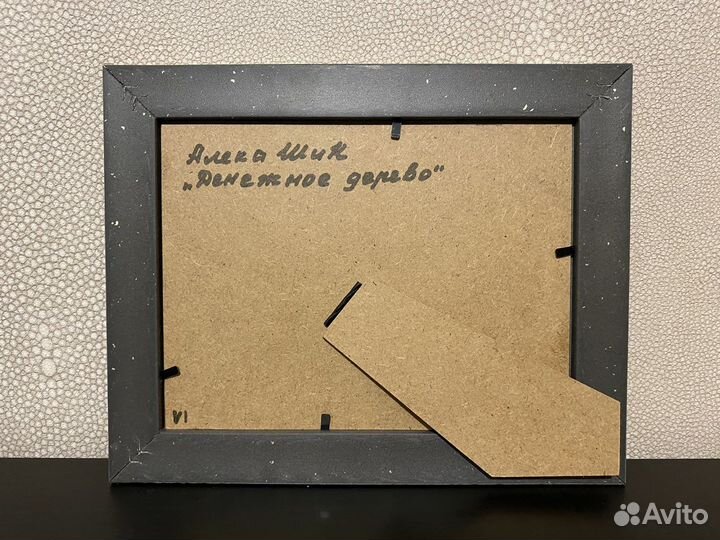 Алека Шик
„Денежное дерево"
VI
Avito